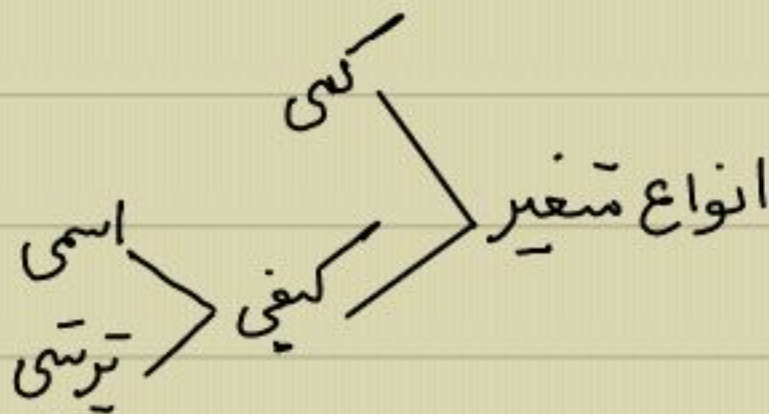 انواع متغیر
کمی
کیفی
اسمی
ترتیبی